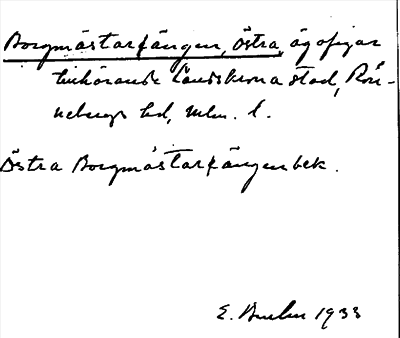 Borgmästarfängen, östra, ägofigur
tillhörande Landskrona stad, Rön-
nebergs hd, Mlm. l.
Östra Borgmästarfängen bek.
E. 1933